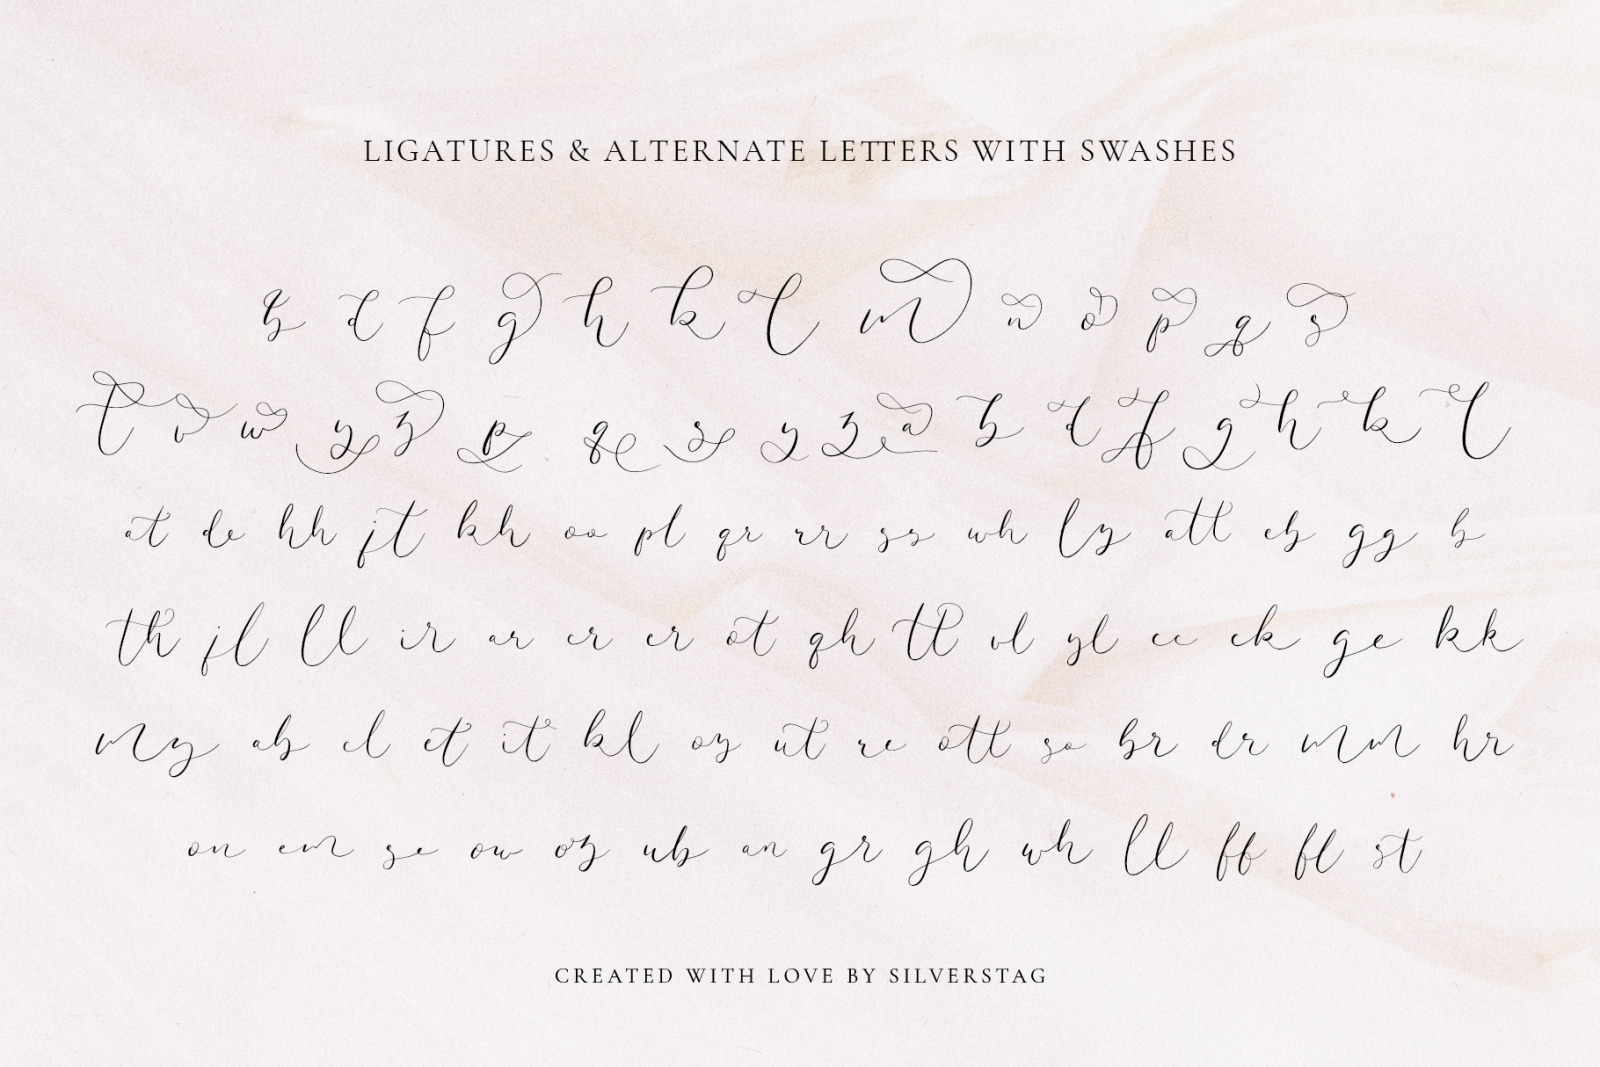 LIGATURES & ALTERNATE LETTERS WITH SWASHES
b d f g h k l m n o p q s
t v w y z p q s y z a b d f g h k l
at de hh jt kh oo pl qr rr ss wh ly att eb gg b
th jl ll ir ar cr er ot qh tt vl yl cc ck ge kk
my ab cl et it kl oy ut re ott so br dr mm hr
on em se ow oz ub an gr gh wh ll ff fl st
CREATED WITH LOVE BY SILVERSTAG